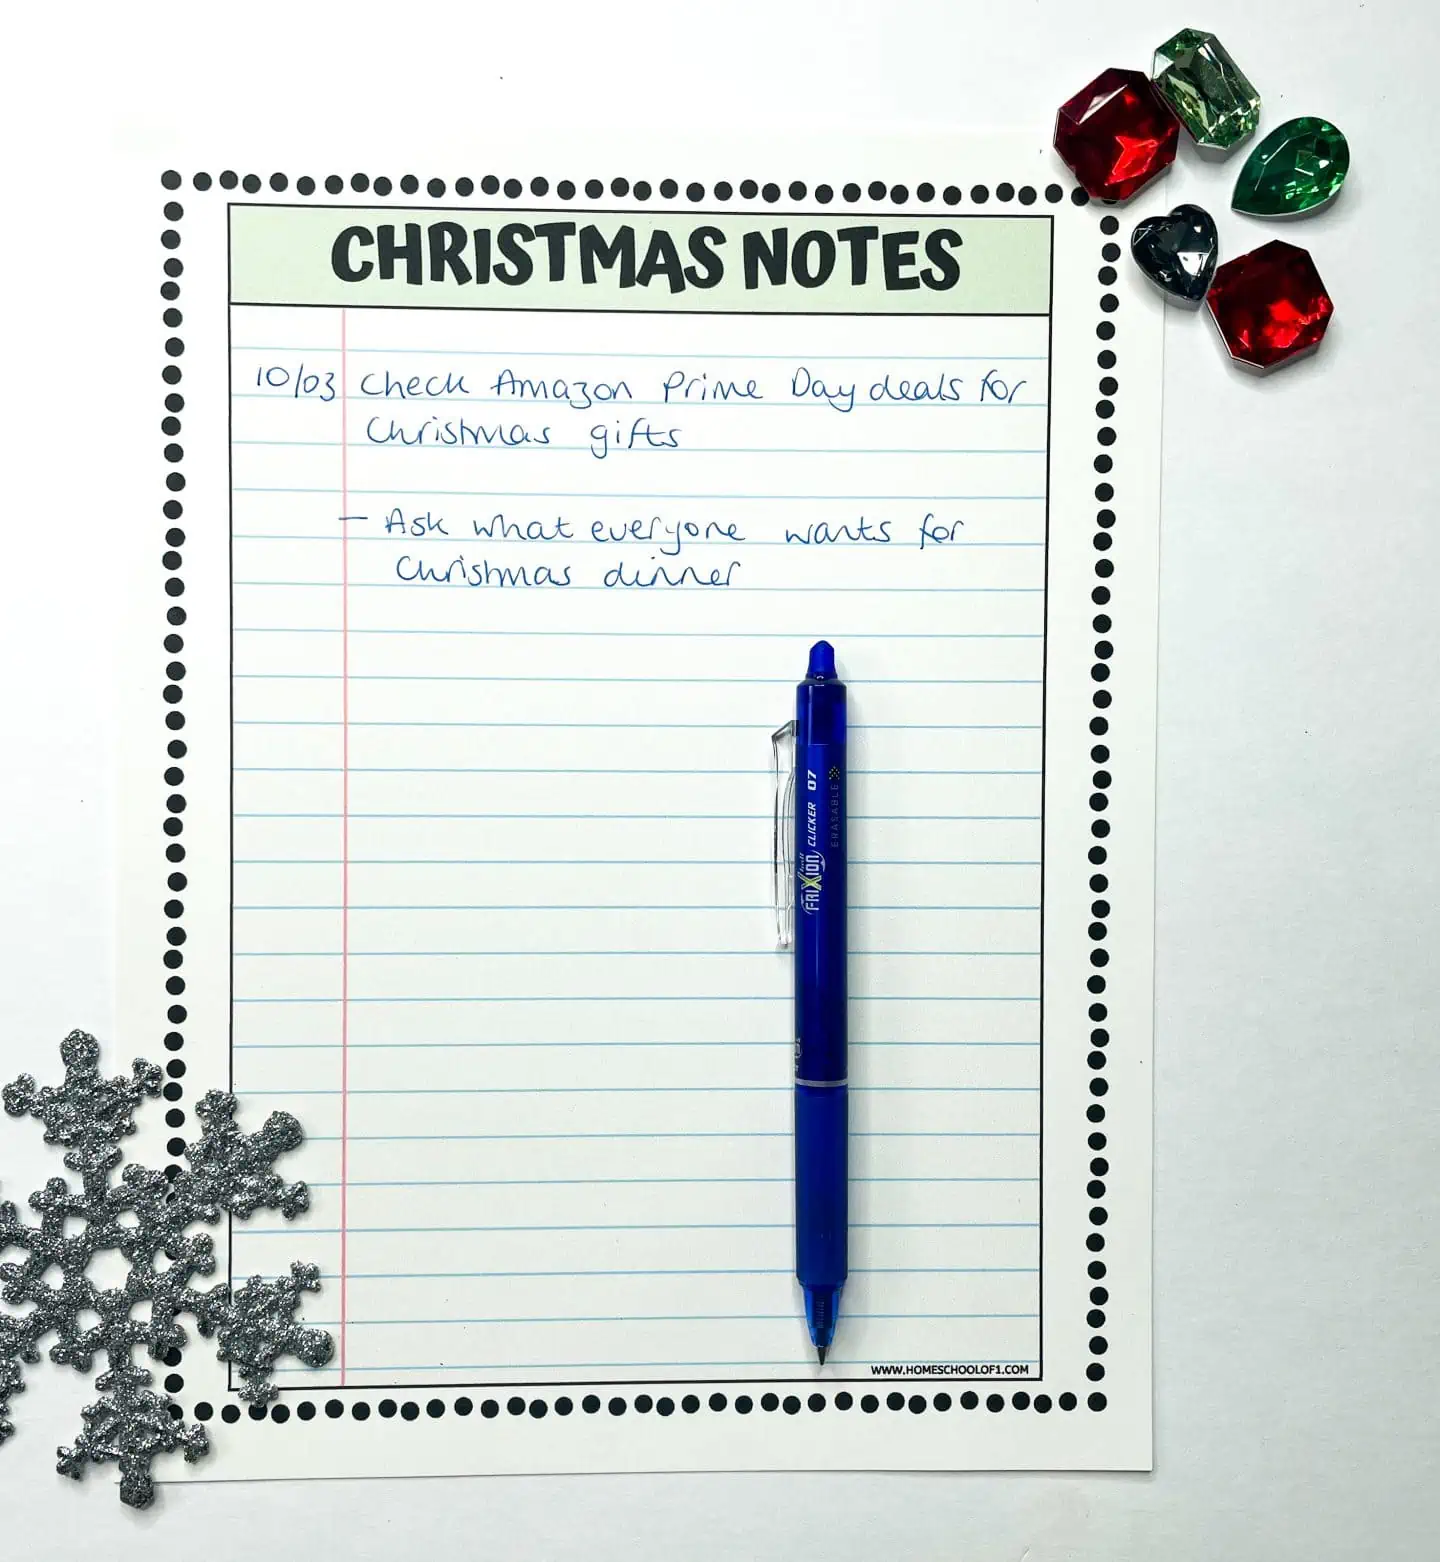 CHRISTMAS NOTES
10/03 Check Amazon Prime Day deals for
Christmas gifts
- Ask what everyone wants for
Christmas dinner
Pilot FRIXION CLICKER 07
ERASABLE
WWW.HOMESCHOOLOF1.COM